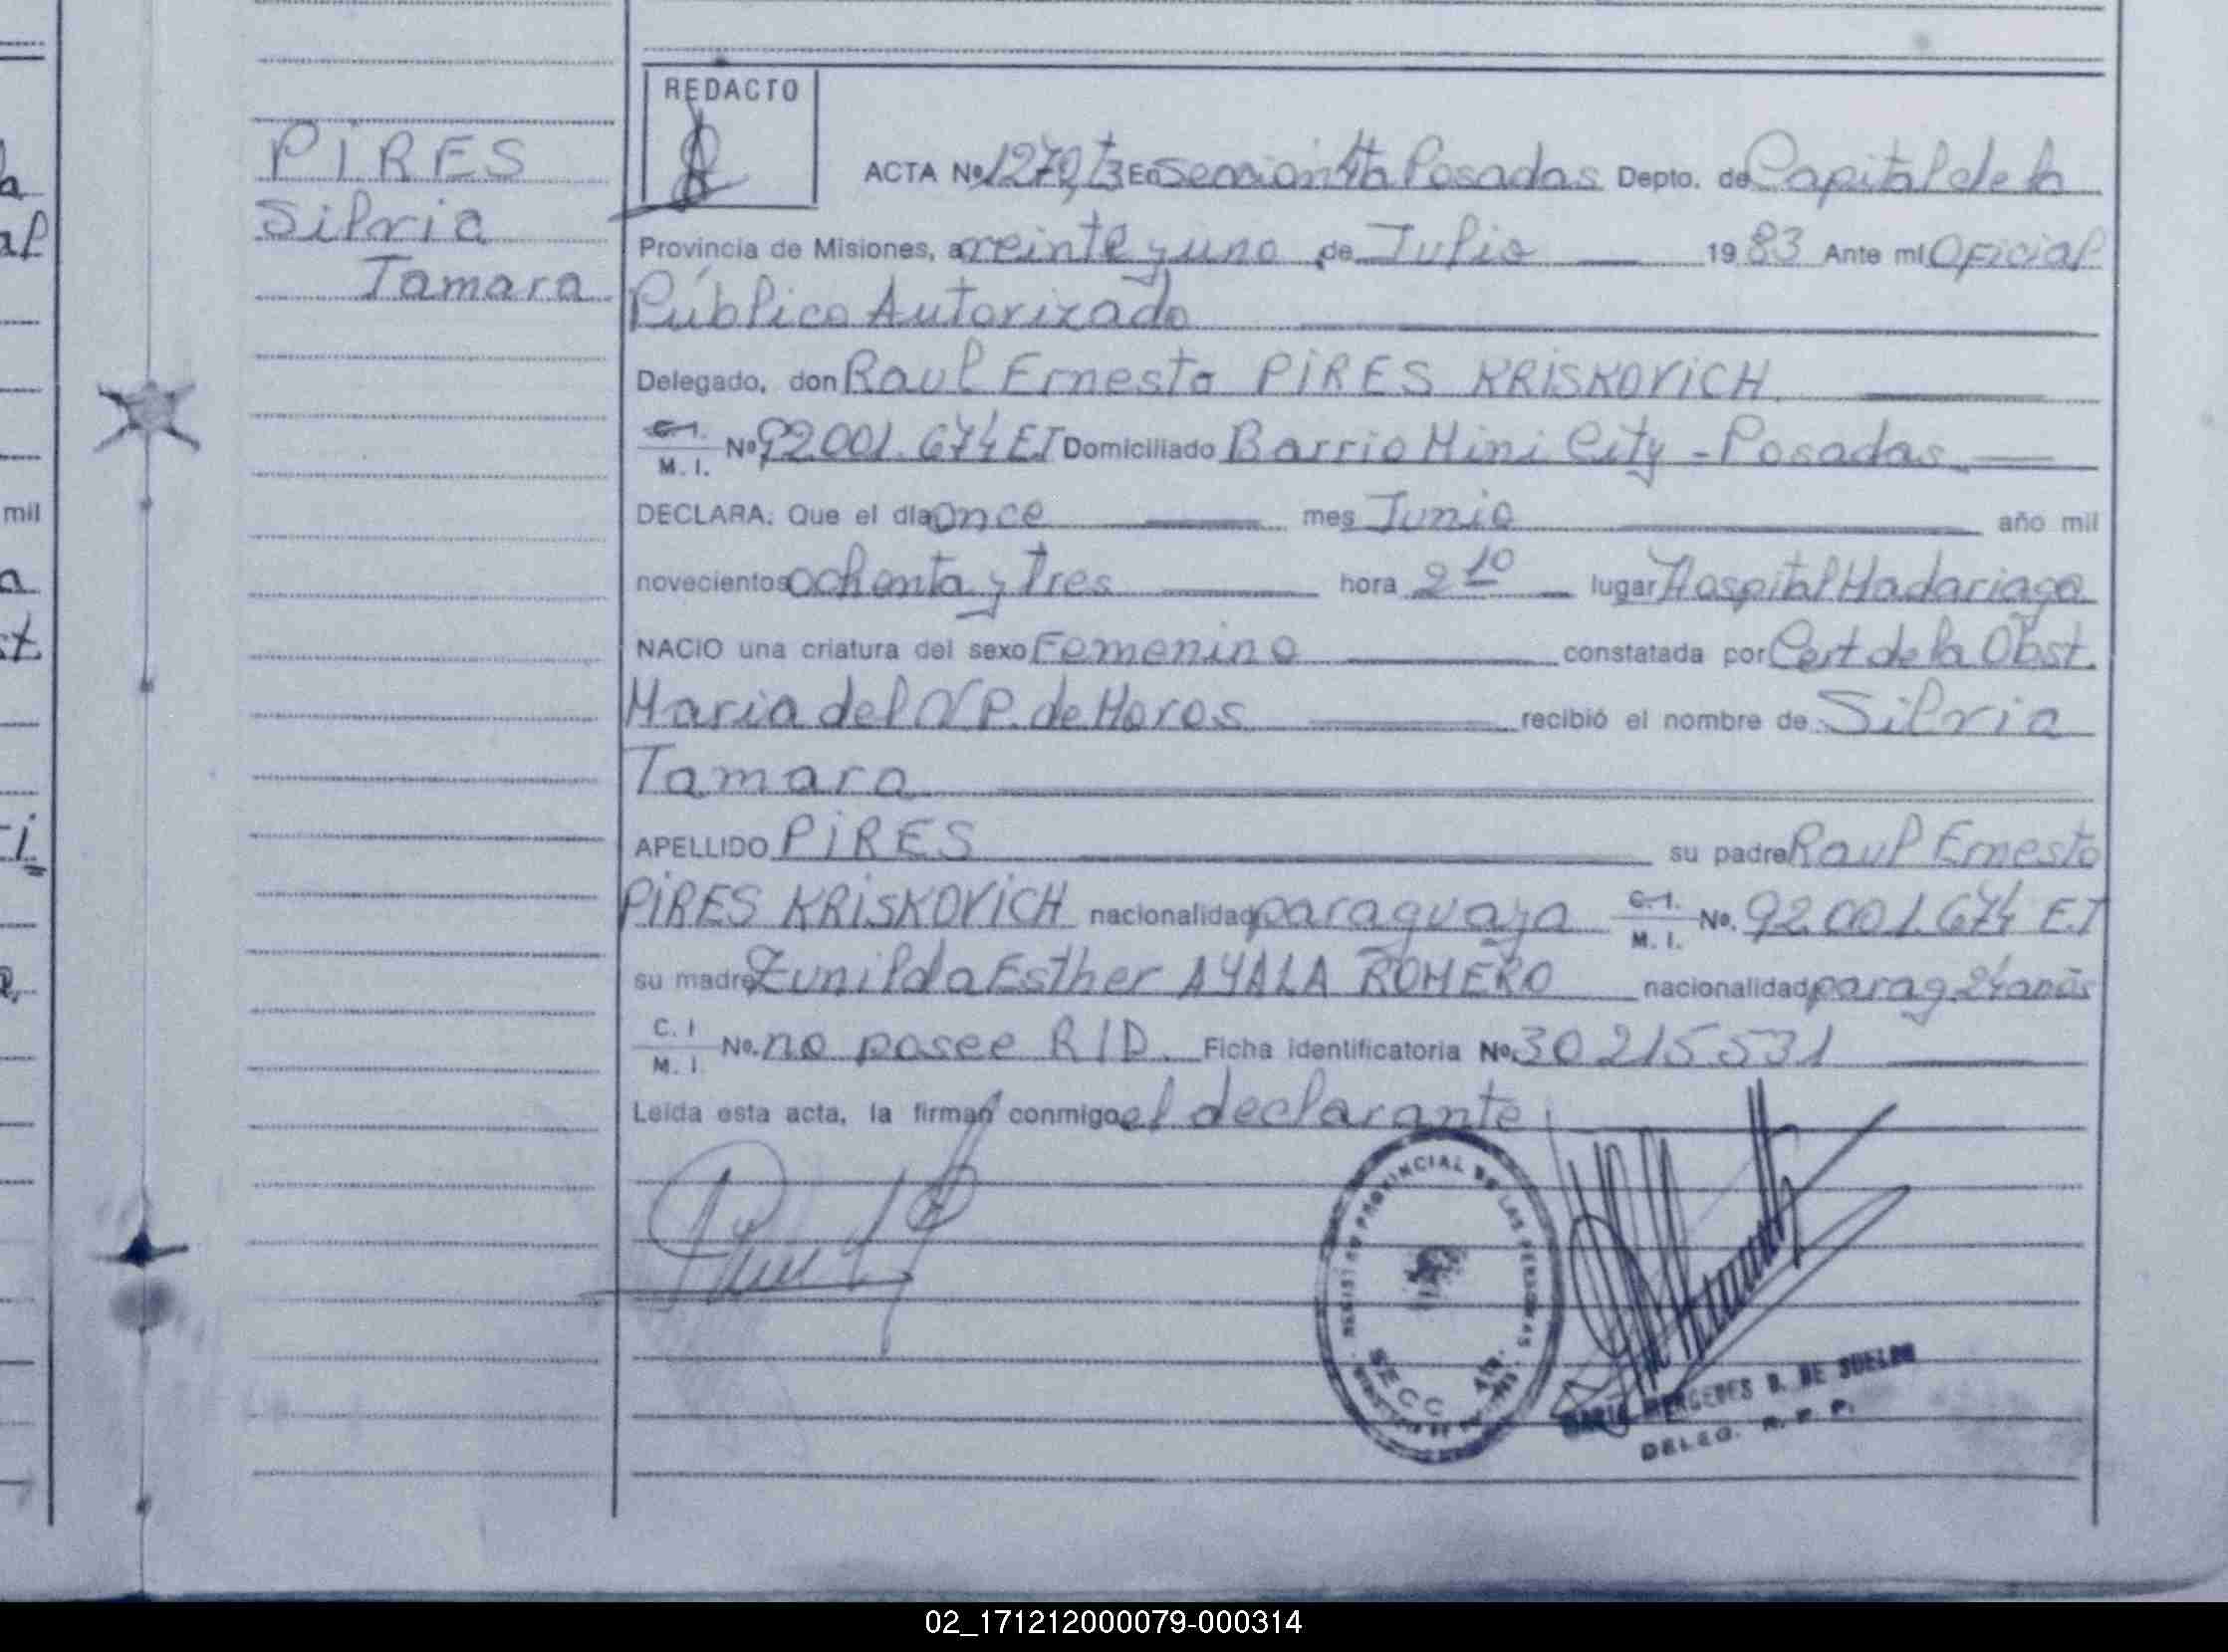 REDACTO
PIRES
Silvia
Tamara
ACTA Nº 1270, t3 En sección 4ta Posadas Depto. de Capital de la
Provincia de Misiones, a veinte y uno de Julio 1983 Ante mí Oficial
Público Autorizado
Delegado, don Raul Ernesto PIRES KRISKOVICH.
C.I. M. I. Nº 92.001.674 ET Domiciliado Barrio Mini City - Posadas
DECLARA: Que el día once mes Junio año mil
novecientos ochenta y tres hora 2 10 lugar Hospital Madariaga
NACIO una criatura del sexo Femenino constatada por Cert de la Obst.
Maria del N P. de Moros recibió el nombre de Silvia
Tamara
APELLIDO PIRES su padre Raul Ernesto
PIRES KRISKOVICH nacionalidad paraguaya C.I. M. I. Nº. 92.001.674 E.T
su madre Zunilda Esther AYALA ROMERO nacionalidad parag. 24 años
C. I M. I. Nº. no posee R I D. Ficha Identificatoria Nº. 30 215.531
Leída esta acta, la firman conmigo el declarante
REGISTRO PROVINCIAL DE LAS PERSONAS
SECC 4ta.
MARIA MERCEDES B. DE
DELEG. R. P. P.
mil
02_171212000079-000314